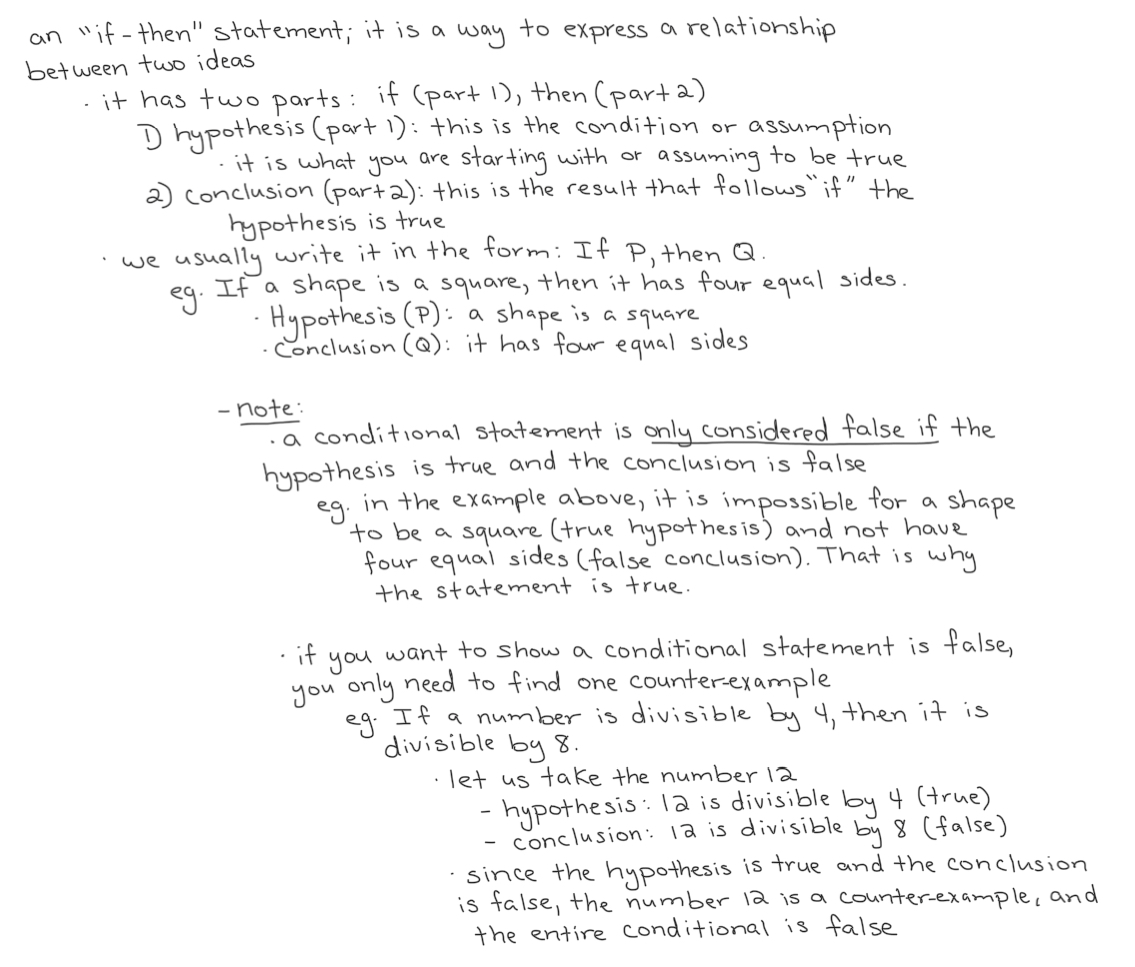 an "if-then" statement; it is a way to express a relationship
between two ideas
· it has two parts: if (part 1), then (part 2)
1) hypothesis (part 1): this is the condition or assumption
· it is what you are starting with or assuming to be true
2) conclusion (part 2): this is the result that follows "if" the
hypothesis is true
· we usually write it in the form: If P, then Q.
eg. If a shape is a square, then it has four equal sides.
· Hypothesis (P): a shape is a square
· Conclusion (Q): it has four equal sides
- note:
· a conditional statement is only considered false if the
hypothesis is true and the conclusion is false
eg. in the example above, it is impossible for a shape
to be a square (true hypothesis) and not have
four equal sides (false conclusion). That is why
the statement is true.
· if you want to show a conditional statement is false,
you only need to find one counter-example
eg. If a number is divisible by 4, then it is
divisible by 8.
· let us take the number 12
- hypothesis: 12 is divisible by 4 (true)
- conclusion: 12 is divisible by 8 (false)
· since the hypothesis is true and the conclusion
is false, the number 12 is a counter-example, and
the entire conditional is false